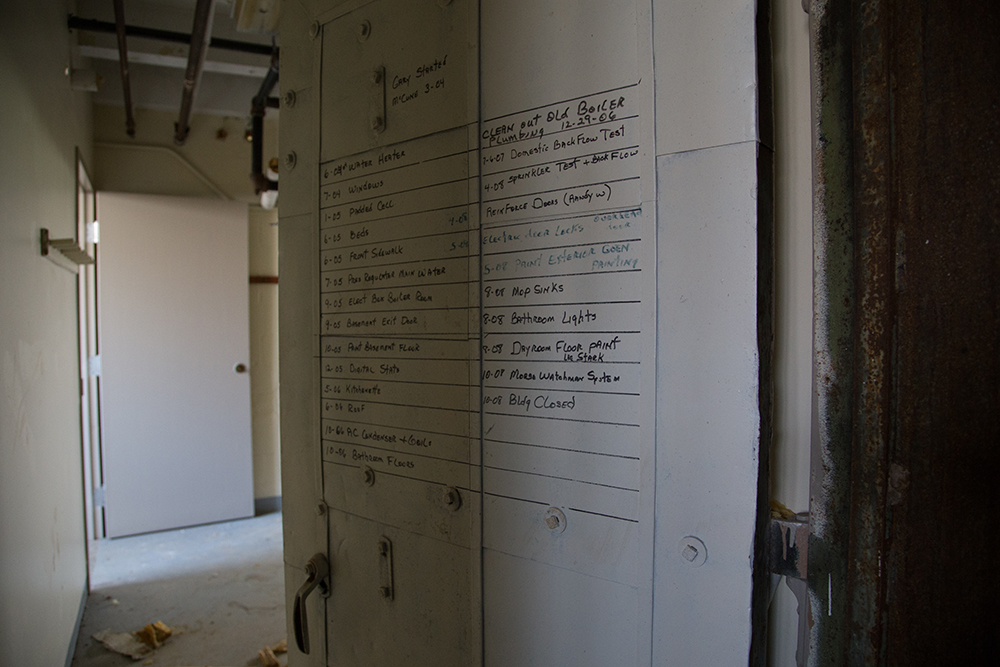 Gary Started
McCune 3-04
6-04 Water Heater
7-04 Windows
1-05 Padded Cell
6-05 Beds 9-08
6-05 Front Sidewalk 5-08
7-05 Regulator Main Water
9-05 Elect Box Boiler Room
9-05 Basement Exit Door
10-05 Paint Basement Floor
12-05 Digital Stats
5-06 Kitchenette
6-06 Roof
10-06 AC Condenser + Coils
10-06 Bathroom Floors
Clean out Old Boiler
Plumbing 12-29-06
Domestic Backflow Test
4-08 Sprinkler Test + Backflow
Reinforce Doors (Randy W)
Electric Door Locks Overhead
Door
5-08 Paint Exterior Green
Painting
8-08 Mop Sinks
8-08 Bathroom Lights
8-08 Dayroom Floor Paint
Stark
10-08 Morse Watchman System
10-08 Bldg Closed